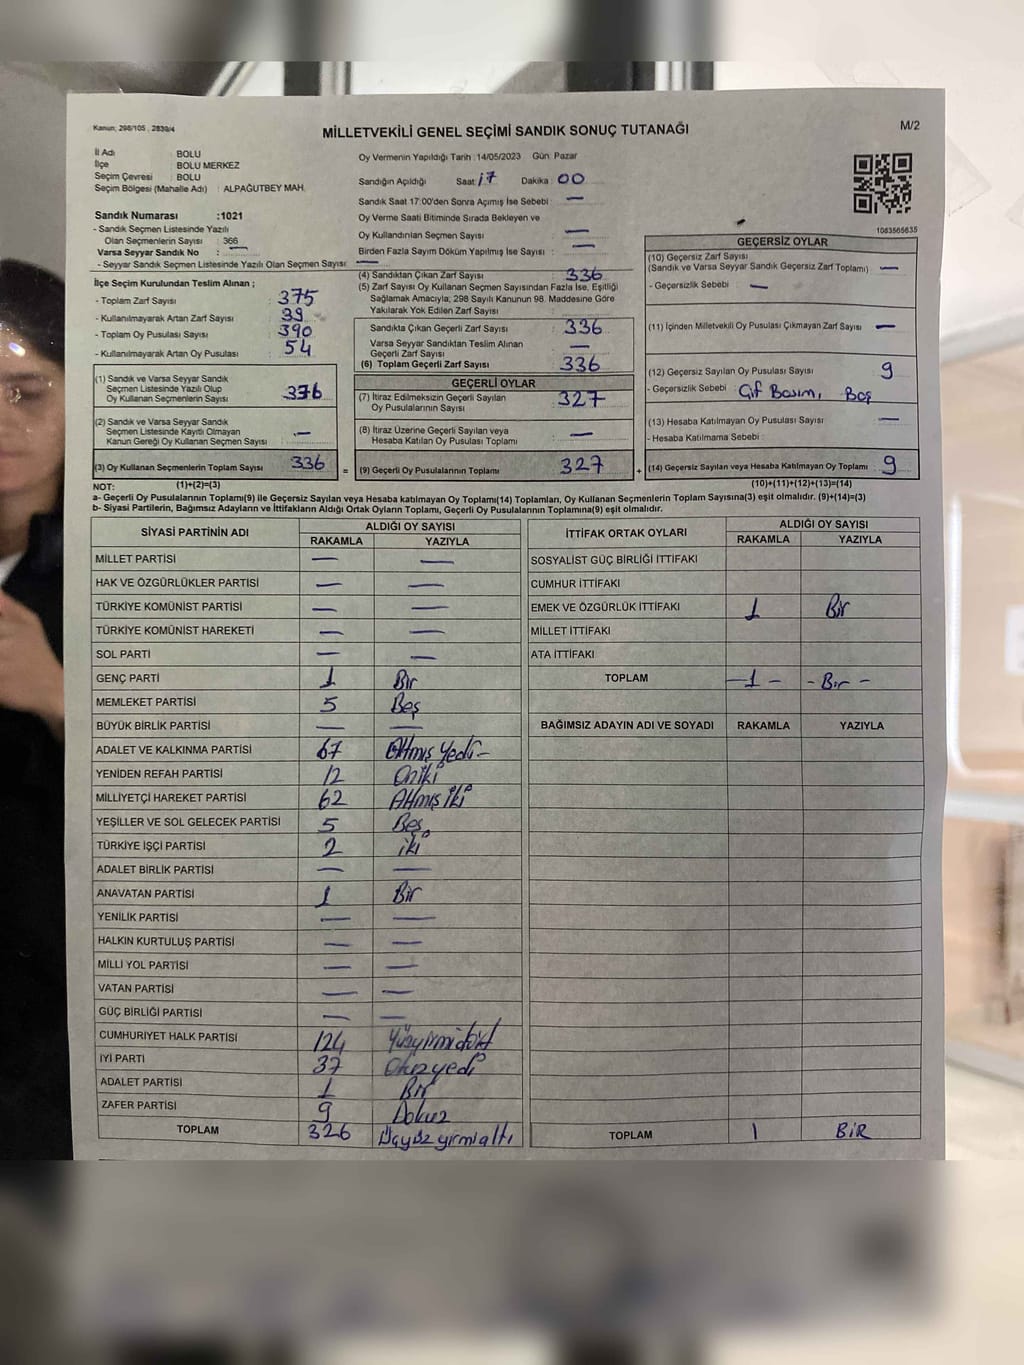 Kanun; 298/105 , 2839/4
MİLLETVEKİLİ GENEL SEÇİMİ SANDIK SONUÇ TUTANAĞI
M/2
İl Adı : BOLU
İlçe : BOLU MERKEZ
Seçim Çevresi : BOLU
Seçim Bölgesi (Mahalle Adı) : ALPAĞUTBEY MAH.
Sandık Numarası :1021
- Sandık Seçmen Listesinde Yazılı
Olan Seçmenlerin Sayısı : 366
Varsa Seyyar Sandık No : —
- Seyyar Sandık Seçmen Listesinde Yazılı Olan Seçmen Sayısı —
İlçe Seçim Kurulundan Teslim Alınan ;
- Toplam Zarf Sayısı : 375
- Kullanılmayarak Artan Zarf Sayısı : 39
- Toplam Oy Pusulası Sayısı : 390
- Kullanılmayarak Artan Oy Pusulası : 54
(1) Sandık ve Varsa Seyyar Sandık
Seçmen Listesinde Yazılı Olup
Oy Kullanan Seçmenlerin Sayısı
(2) Sandık ve Varsa Seyyar Sandık
Seçmen Listesinde Kayıtlı Olmayan
Kanun Gereği Oy Kullanan Seçmen Sayısı : —
(3) Oy Kullanan Seçmenlerin Toplam Sayısı 336
Oy Vermenin Yapıldığı Tarih : 14/05/2023 Gün: Pazar
Sandığın Açıldığı Saat: 17 Dakika : 00
Sandık Saat 17:00'den Sonra Açımış İse Sebebi : —
Oy Verme Saati Bitiminde Sırada Bekleyen ve
Oy Kullandırılan Seçmen Sayısı : —
Birden Fazla Sayım Döküm Yapılmış İse Sayısı : —
(4) Sandıktan Çıkan Zarf Sayısı : 336
(5) Zarf Sayısı Oy Kullanan Seçmen Sayısından Fazla İse, Eşitliği
Sağlamak Amacıyla; 298 Sayılı Kanunun 98. Maddesine Göre
Yakılarak Yok Edilen Zarf Sayısı :
Sandıkta Çıkan Geçerli Zarf Sayısı : 336
Varsa Seyyar Sandıktan Teslim Alınan
Geçerli Zarf Sayısı : —
(6) Toplam Geçerli Zarf Sayısı : 336
GEÇERLİ OYLAR
(7) İtiraz Edilmeksizin Geçerli Sayılan
Oy Pusulalarının Sayısı : 327
(8) İtiraz Üzerine Geçerli Sayılan veya
Hesaba Katılan Oy Pusulası Toplamı : —
= (9) Geçerli Oy Pusulalarının Toplamı : 327 +
1083565635
GEÇERSİZ OYLAR
(10) Geçersiz Zarf Sayısı
(Sandık ve Varsa Seyyar Sandık Geçersiz Zarf Toplamı) : —
- Geçersizlik Sebebi : —
(11) İçinden Milletvekili Oy Pusulası Çıkmayan Zarf Sayısı : —
(12) Geçersiz Sayılan Oy Pusulası Sayısı : 9
- Geçersizlik Sebebi : Çif Basım, Boş
(13) Hesaba Katılmayan Oy Pusulası Sayısı : —
- Hesaba Katılmama Sebebi :
(14) Geçersiz Sayılan veya Hesaba Katılmayan Oy Toplamı : 9
NOT: (1)+(2)=(3) (10)+(11)+(12)+(13)=(14)
a- Geçerli Oy Pusulalarının Toplamı(9) ile Geçersiz Sayılan veya Hesaba katılmayan Oy Toplamı(14) Toplamları, Oy Kullanan Seçmenlerin Toplam Sayısına(3) eşit olmalıdır. (9)+(14)=(3)
b- Siyasi Partilerin, Bağımsız Adayların ve İttifakların Aldığı Ortak Oyların Toplamı, Geçerli Oy Pusulalarının Toplamına(9) eşit olmalıdır.
SİYASİ PARTİNİN ADI ALDIĞI OY SAYISI
RAKAMLA YAZIYLA
MİLLET PARTİSİ — —
HAK VE ÖZGÜRLÜKLER PARTİSİ — —
TÜRKİYE KOMÜNİST PARTİSİ — —
TÜRKİYE KOMÜNİST HAREKETİ — —
SOL PARTİ — —
GENÇ PARTİ 1 Bir
MEMLEKET PARTİSİ 5 Beş
BÜYÜK BİRLİK PARTİSİ — —
ADALET VE KALKINMA PARTİSİ 67 Altmış yedi
YENİDEN REFAH PARTİSİ 12 Oniki
MİLLİYETÇİ HAREKET PARTİSİ 62 Altmış iki
YEŞİLLER VE SOL GELECEK PARTİSİ 5 Beş
TÜRKİYE İŞÇİ PARTİSİ 2 iki
ADALET BİRLİK PARTİSİ — —
ANAVATAN PARTİSİ 1 Bir
YENİLİK PARTİSİ — —
HALKIN KURTULUŞ PARTİSİ — —
MİLLİ YOL PARTİSİ — —
VATAN PARTİSİ — —
GÜÇ BİRLİĞİ PARTİSİ — —
CUMHURİYET HALK PARTİSİ 124 Yüzyirmidört
İYİ PARTİ 37 Otuzyedi
ADALET PARTİSİ 1 Bir
ZAFER PARTİSİ 9 Dokuz
TOPLAM 326 Üçyüz yirmialtı
İTTİFAK ORTAK OYLARI ALDIĞI OY SAYISI
RAKAMLA YAZIYLA
SOSYALİST GÜÇ BİRLİĞİ İTTİFAKI
CUMHUR İTTİFAKI
EMEK VE ÖZGÜRLÜK İTTİFAKI 1 Bir
MİLLET İTTİFAKI
ATA İTTİFAKI
TOPLAM —1 - - Bir -
BAĞIMSIZ ADAYIN ADI VE SOYADI RAKAMLA YAZIYLA
TOPLAM 1 BİR